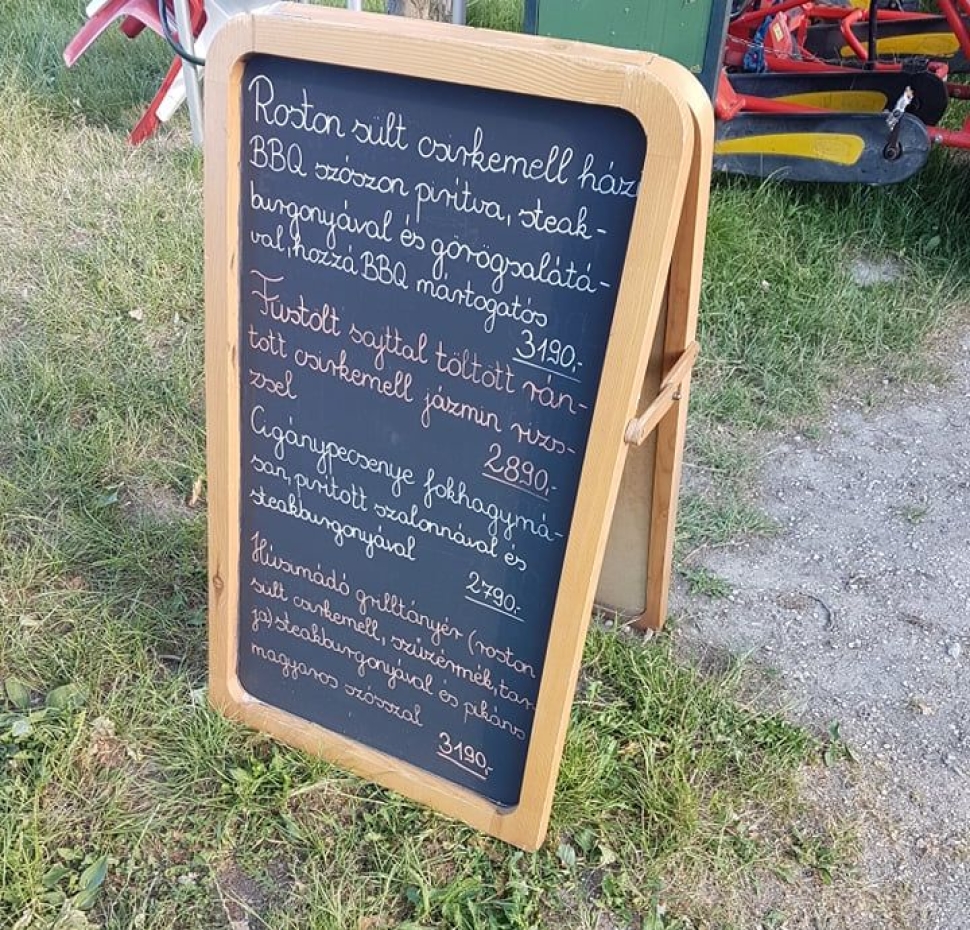 Roston sült csirkemell házi
BBQ szószon pirítva, steak-
burgonyával és görögsalátá-
val, hozzá BBQ mártogatós
3190,-
Füstölt sajttal töltött rán-
tott csirkemell jázmin rizs-
zsel
2890,-
Cigánypecsenye fokhagymá-
san, pirított szalonnával és
steakburgonyával
2790.-
Húsimádó grilltányér (roston
sült csirkemell, szűzérmék, tar
ja) steakburgonyával és pikáns
magyaros szósszal
3190,-